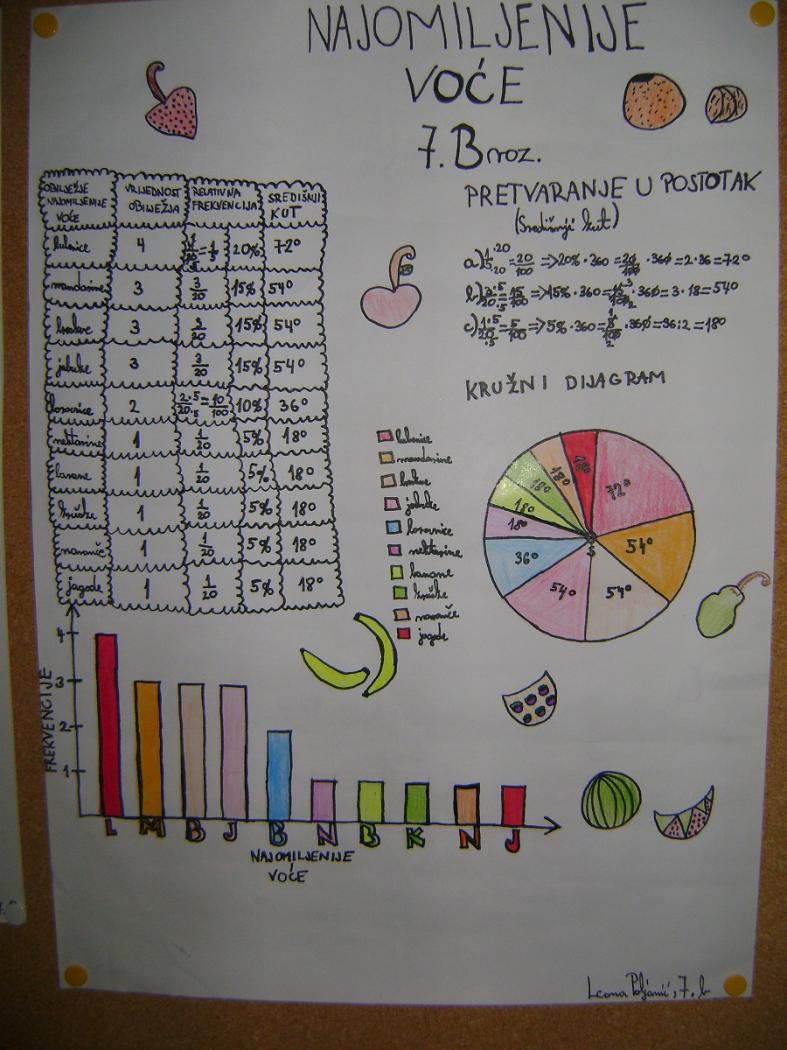 NAJOMILJENIJE
VOĆE
7. B roz.
OBILJEŽJE NAJOMILJENIJE VOĆE VRIJEDNOST OBILJEŽJA RELATIVNA FREKVENCIJA SREDIŠNJI KUT
lubenice 4 = 1/5 20% 72°
mandarine 3 3/20 15% 54°
breskve 3 3/20 15% 54°
jabuke 3 3/20 15% 54°
borovnice 2 2·5/20·5 = 10/100 10% 36°
nektarine 1 1/20 5% 18°
banane 1 1/20 5% 18°
kruške 1 1/20 5% 18°
naranče 1 1/20 5% 18°
jagode 1 1/20 5% 18°
PRETVARANJE U POSTOTAK
(Središnji kut)
a) 1·20/5·20 = 20/100 => 20% · 360 = 20/100 · 360 = 2 · 36 = 72°
b) 3·5/20·5 = 15/100 => 15% · 360 = 15/100 · 360 = 3 · 18 = 54°
c) 1·5/20·5 = 5/100 => 5% · 360 = 5/100 · 360 = 36:2 = 18°
KRUŽNI DIJAGRAM
lubenice
mandarine
breskve
jabuke
borovnice
nektarine
banane
kruške
naranče
jagode
72°
54°
54°
54°
36°
18°
18°
18°
18°
18°
S
FREKVENCIJE
4
3
2
1
L M B J B N B K N J
NAJOMILJENIJE
VOĆE
7. b